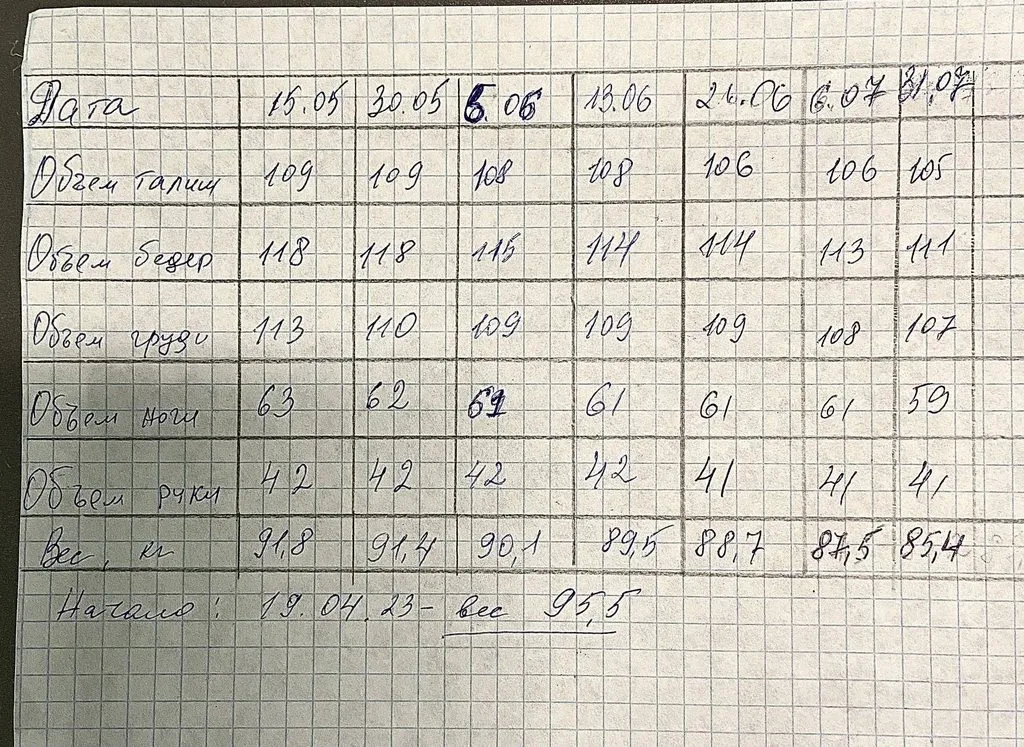 Дата 15.05 30.05 6.06 13.06 26.06 6.07 31.07
Объем талии 109 109 108 108 106 106 105
Объем бедер 118 118 115 114 114 113 111
Объем груди 113 110 109 109 109 108 107
Объем ноги 63 62 61 61 61 61 59
Объем руки 42 42 42 42 41 41 41
Вес, кг 91,8 91,4 90,1 89,5 88,7 87,5 85,4
Начало: 19.04.23 - вес 95,5